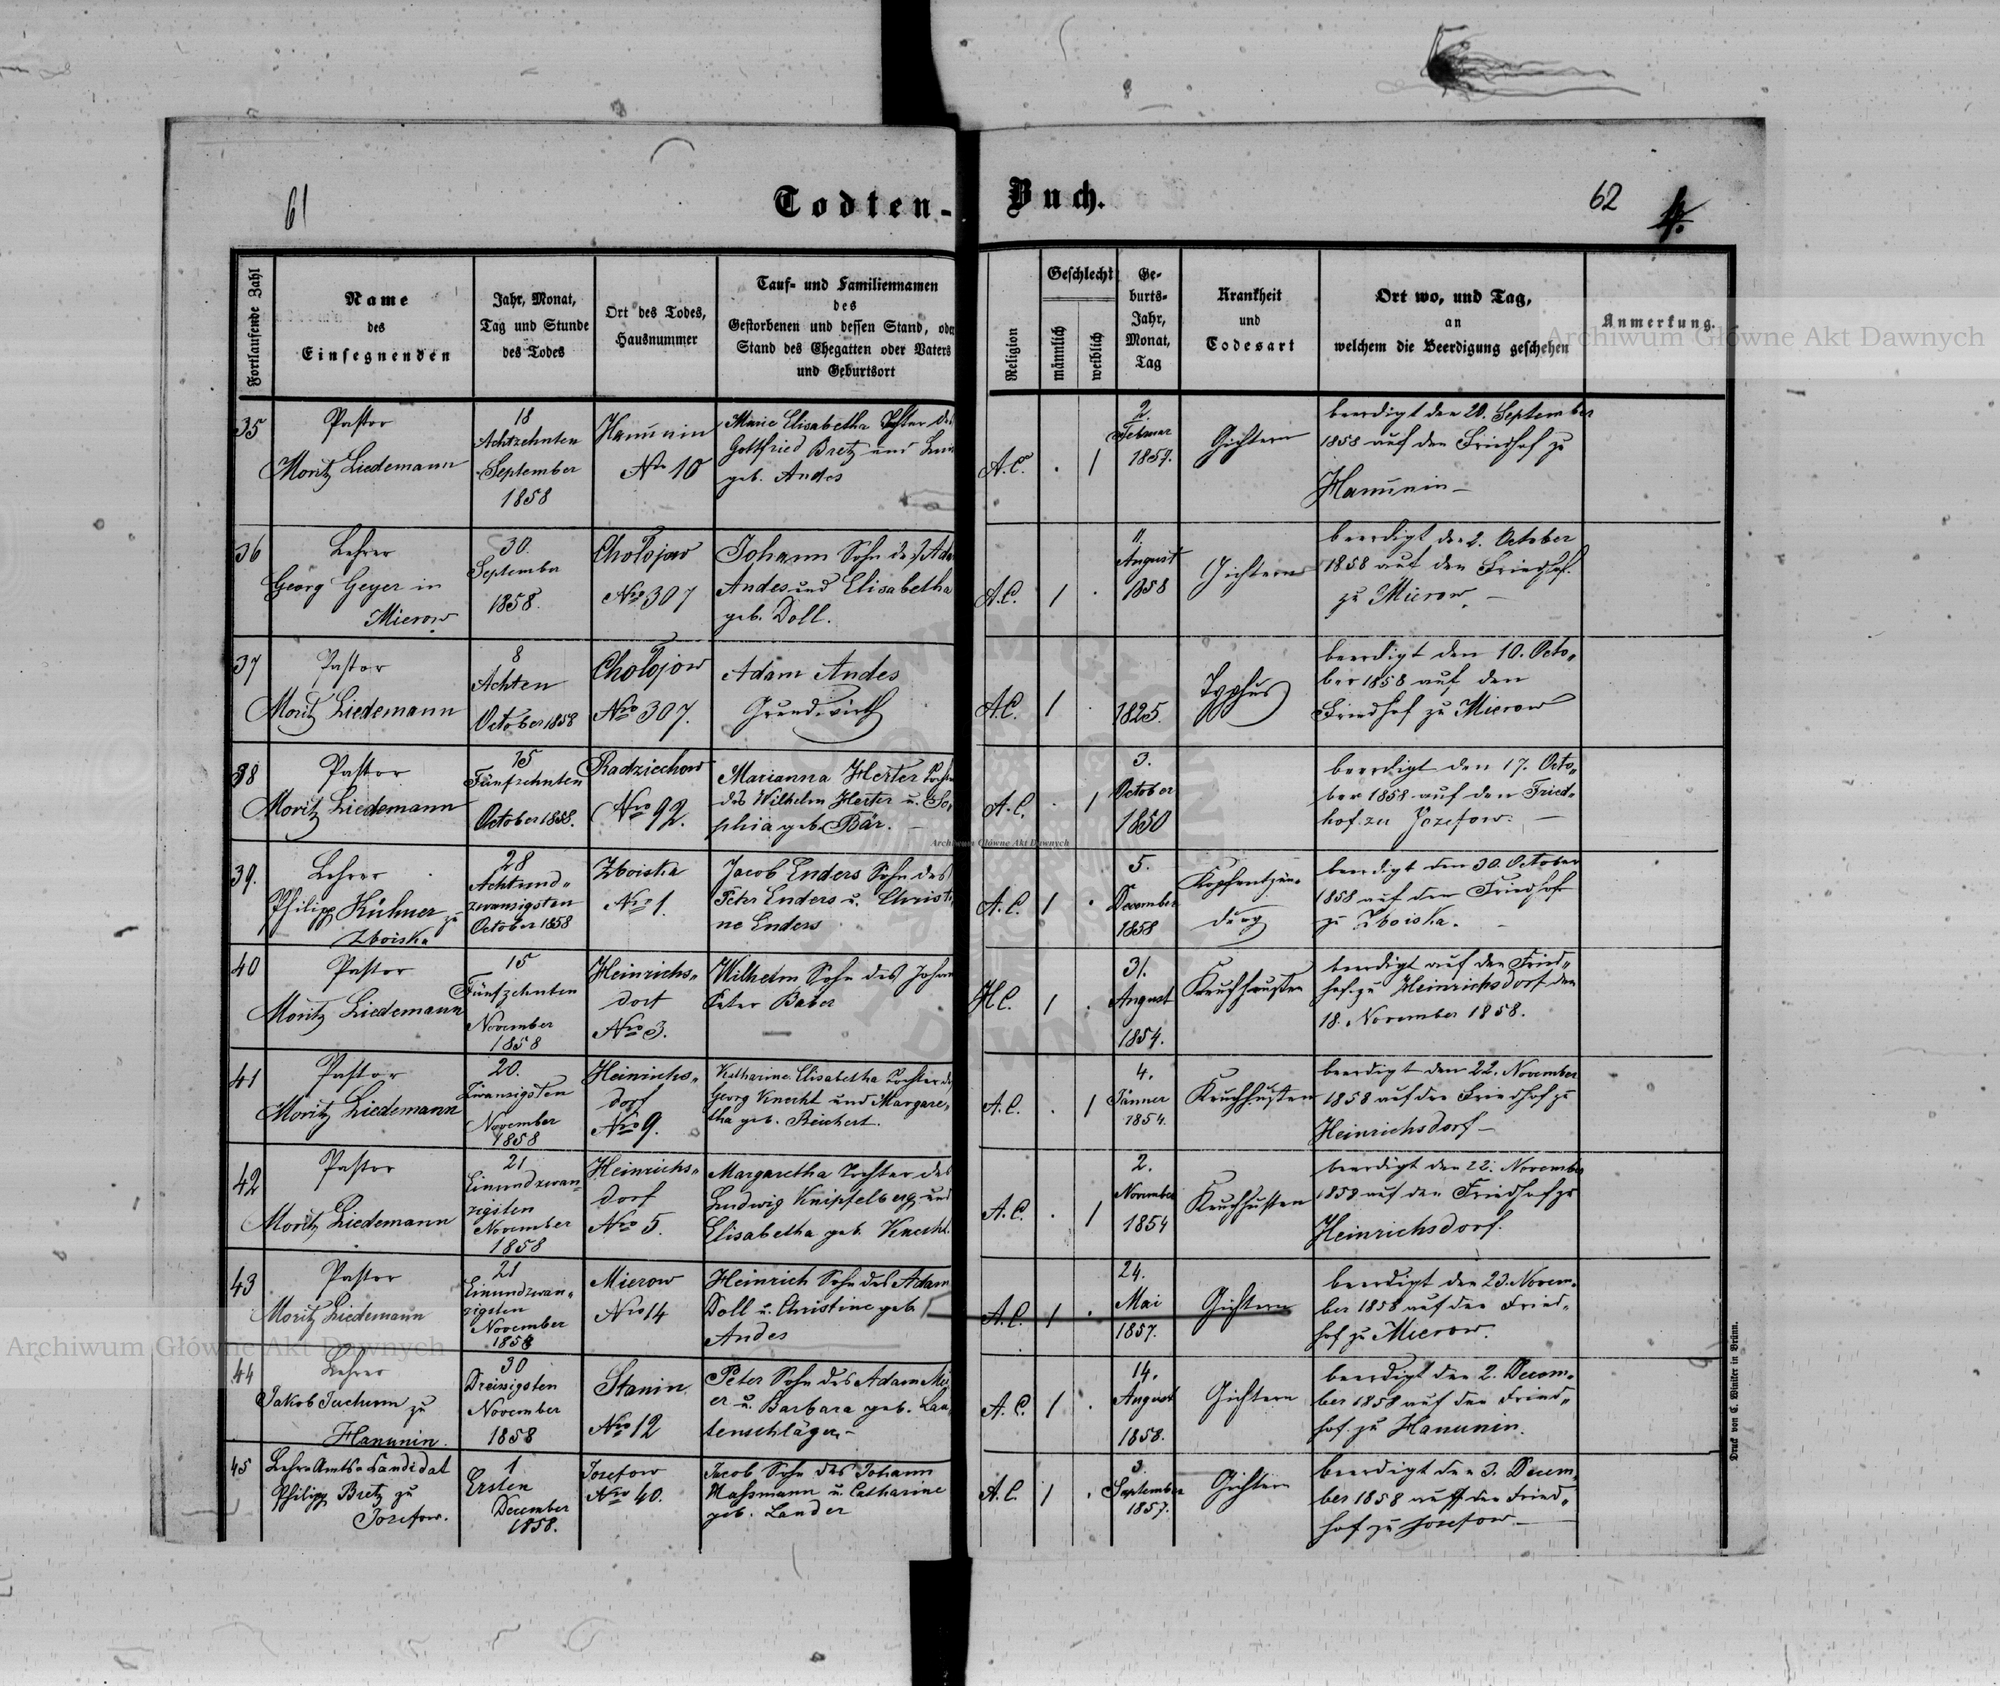 61
Todten-Buch.
62
Fortlaufende Zahl
Name
des
Einsegnenden
Jahr, Monat,
Tag und Stunde
des Todes
Ort des Todes,
Hausnummer
Tauf- und Familiennamen
des
Gestorbenen und dessen Stand, oder
Stand des Ehegatten oder Vaters
und Geburtsort
Religion
Geschlecht
männlich
weiblich
Ge-
burts-
Jahr,
Monat,
Tag
Krankheit
und
Todesart
Ort wo, und Tag,
an
welchem die Beerdigung geschehen
Anmerkung.
35
Pastor
Moritz Liedemann
18
Achtzehnten
September
1858
Hanunin
No 10
Marie Elisabetha Tochter des
Gottfried Bretz und
geb. Andes
A.C. . 1
2.
Februar
1857.
Gichtern
beerdigt den 20. September
1858 auf den Friedhof zu
Hanunin –
36
Lehrer
Georg Geyer in
Mierow
30.
September
1858.
Cholojow
Nro 307
Johann Sohn des Adam
Andes und Elisabetha
geb. Doll.
A.C. 1 .
11.
August
1858
Gichtern
beerdigt den 2. October
1858 auf den Friedhof
zu Mierow. –
37
Pastor
Moritz Liedemann
8
Achten
October 1858
Cholojow
Nro 307.
Adam Andes
Grundwirth
A.C. 1 .
1825.
Typhus
beerdigt den 10. Octo„
ber 1858 auf den
Friedhof zu Mierow
38
Pastor
Moritz Liedemann
15
Fünfzehnten
October 1858.
Radziechow
Nro 92.
Marianna Herter Tochter
des Wilhelm Herter u. So„
phia geb. Bär. –
A.C. . 1
3.
October
1850
beerdigt den 17. Octo„
ber 1858 auf den Fried„
hof zu Jozefow. –
39.
Lehrer
Philipp Kühner zu
Zboiska
28
Achtund„
zwanzigsten
October 1858
Zboiska
Nro 1.
Jacob Enders Sohn des
Peter Enders u. Christi„
ne Enders
A.C. 1 .
5.
December
1858
Kopfentzün„
dung
beerdigt den 30. October
1858 auf den Friedhof
zu Zboiska. –
40
Pastor
Moritz Liedemann
15
Fünfzehnten
November
1858
Heinrichs„
dorf
Nro 3.
Wilhelm Sohn des Johann
Peter Baber
H.C. 1 .
31.
August
1854.
Keuchhusten
beerdigt auf den Fried„
hof zu Heinrichsdorf den
18. November 1858.
41
Pastor
Moritz Liedemann
20.
Zwanzigsten
November
1858
Heinrichs„
dorf
Nro 9.
Katharine Elisabetha Tochter des
Georg Knecht und Margare„
tha geb. Reichert.
A.C. . 1
4.
Jänner
1854.
Keuchhusten
beerdigt den 22. November
1858 auf den Friedhof zu
Heinrichsdorf –
42
Pastor
Moritz Liedemann
21
Einundzwan„
zigsten
November
1858
Heinrichs„
dorf
Nro 5.
Margaretha Tochter des
Ludwig Knipfelberg und
Elisabetha geb. Knecht.
A.C. . 1
2.
November
1854
Keuchhusten
beerdigt den 22. November
1858 auf den Friedhof zu
Heinrichsdorf.
43
Pastor
Moritz Liedemann
21
Einundzwan„
zigsten
November
1858
Mierow
Nro 14
Heinrich Sohn des Adam
Doll u. Christine geb.
Andes
A.C. 1 .
24.
Mai
1857.
Gichtern
beerdigt den 23. Novem„
ber 1858 auf den Fried„
hof zu Mierow.
44
Lehrer
Jakob zu
Hanunin.
30
Dreissigsten
November
1858
Stanin
Nro 12
Peter Sohn des Adam Mei
er u. Barbara geb. Lau„
tenschläger. –
A.C. 1 .
14.
August
1858.
Gichtern
beerdigt den 2. Decem„
ber 1858 auf den Fried„
hof zu Hanunin.
45
Lehr-Amts-Candidat
Philipp Bretz zu
Jozefow.
1
Ersten
December
1858.
Jozefow
Nro 40.
Jacob Sohn des Johann
Massmann u. Catharine
geb. Lander
A.C. 1 .
3.
September
1857.
Gichtern
beerdigt den 3. Decem„
ber 1858 auf den Fried„
hof zu Jozefow –
Druck von C. Winiker in Brünn.
Archiwum Główne Akt Dawnych
Archiwum Główne Akt Dawnych
Archiwum Główne Akt Dawnych